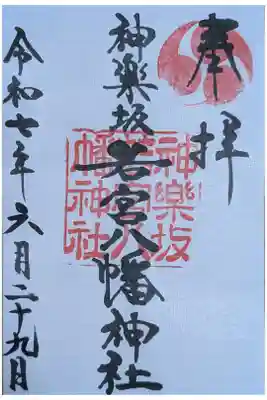 奉拝
神楽坂若宮八幡神社
神樂坂
若宮八
幡神社
令和七年六月二十九日